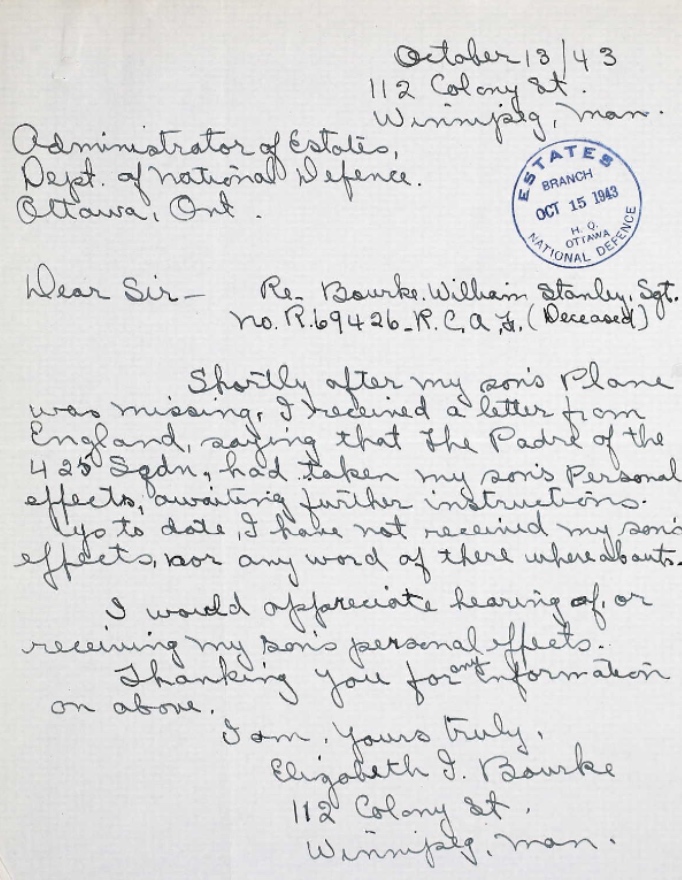 October 13/43
112 Colony St.
Winnipeg, Man.
Administrator of Estates,
Dept. of National Defence.
Ottawa, Ont.
ESTATES
BRANCH
OCT 15 1943
H. Q.
OTTAWA
NATIONAL DEFENCE
Dear Sir — Re- Bourke. William Stanley, Sgt.
No. R.69426-R.C.A.F. (Deceased)
Shortly after my son's Plane
was missing, I received a letter from
England, saying that the Padre of the
425 Sqdn, had taken my son's Personal
effects, awaiting further instructions.
Up to date, I have not received my son's
effects, nor any word of there whereabouts.
I would appreciate hearing of, or
receiving my son's personal effects.
Thanking you for any information
on above.
I am, Yours truly,
Elizabeth I. Bourke
112 Colony St.
Winnipeg, Man.